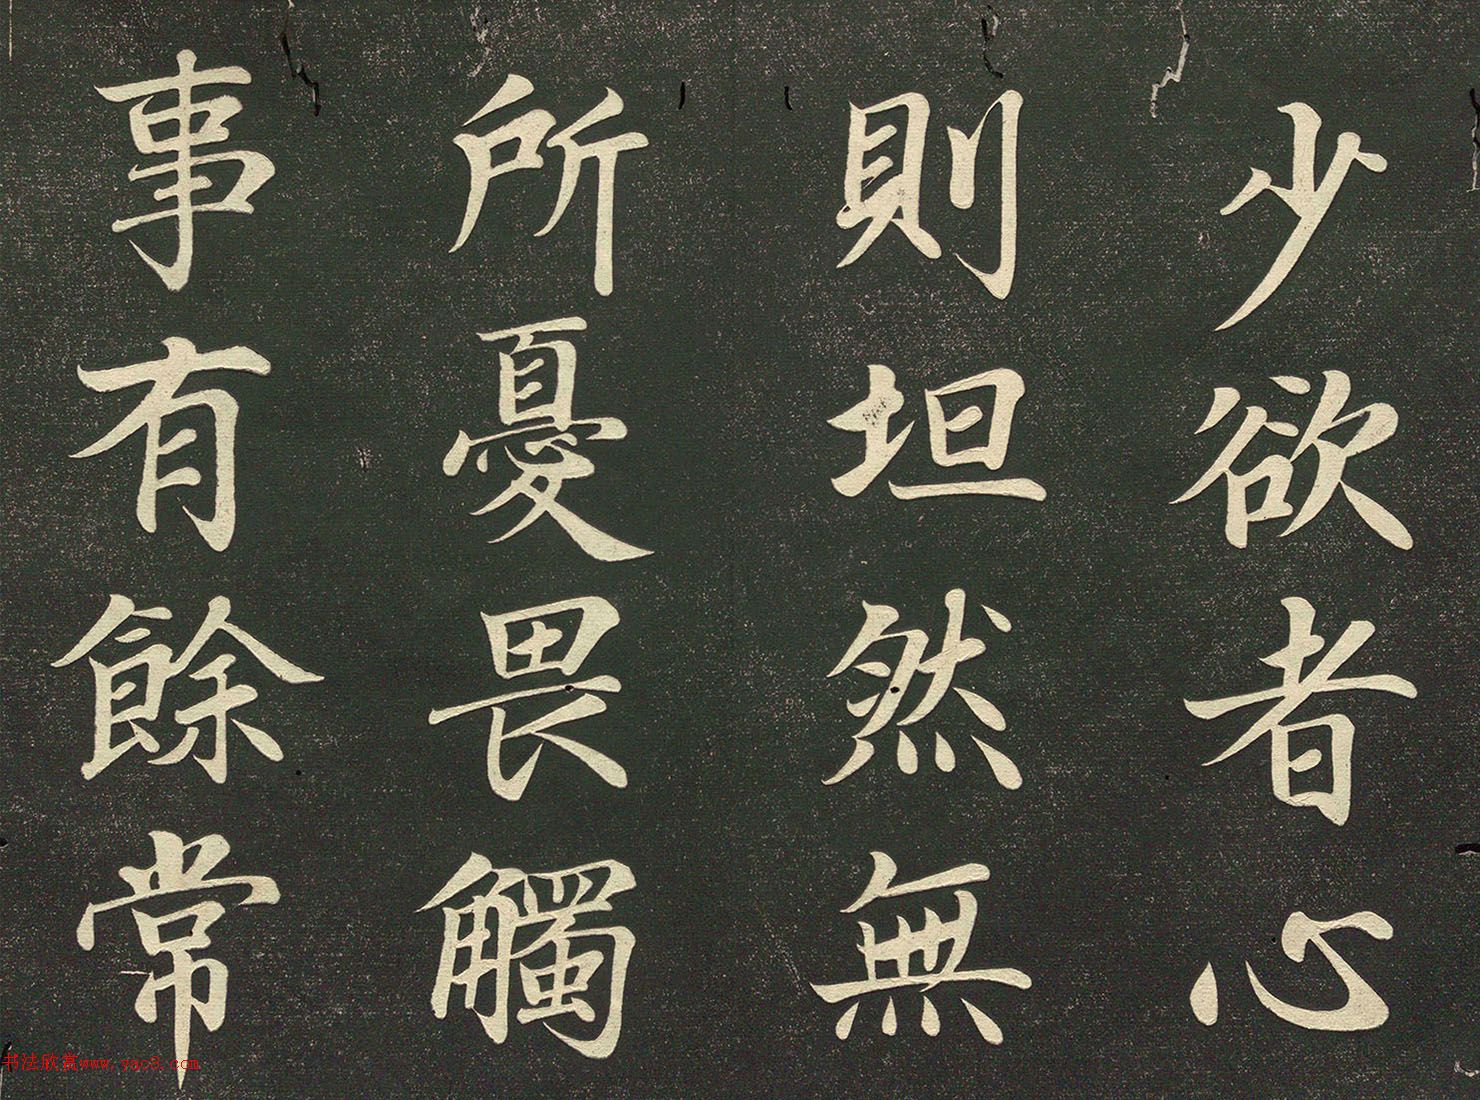 少欲者心
則坦然無
所憂畏觸
事有餘常
书法欣赏www.yac8.com